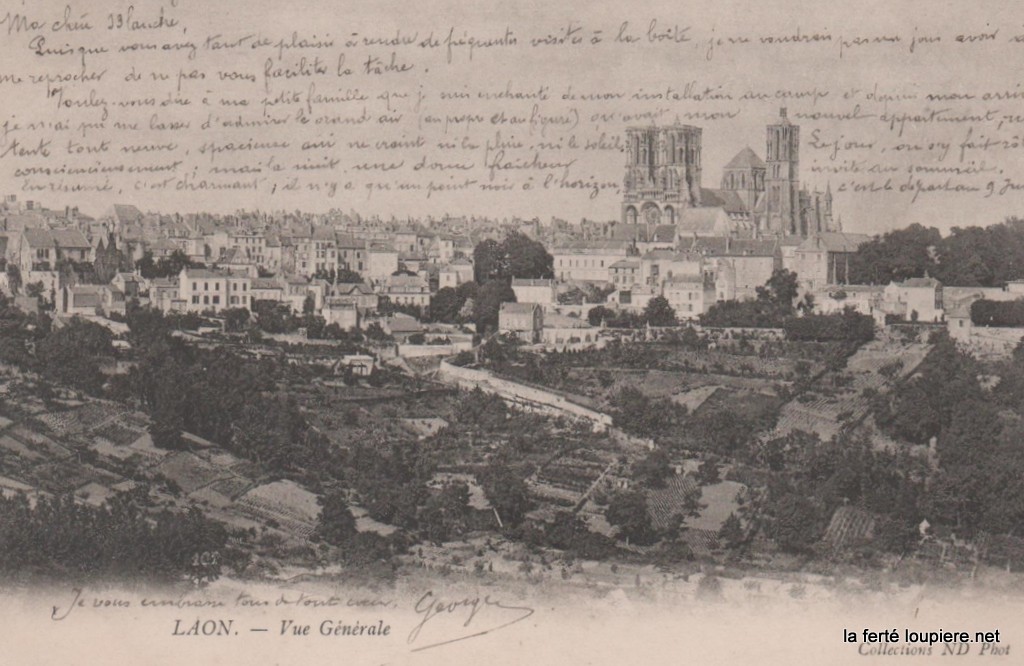 Ma chère Blanche,
Puisque vous avez tant de plaisir à rendre de fréquentes visites à la boîte, je ne voudrais pas un jour avoir
me reprocher de ne pas vous faciliter la tâche.
Voulez-vous dire à ma petite famille que je suis enchanté de mon installation au camp et depuis mon
je n'ai pu me lasser d'admirer le grand air (au propre et au figuré) qu'avait mon nouvel appartement,
tente toute neuve, spacieuse qui ne craint ni la pluie, ni le soleil. Le jour, on s'y fait
consciencieusement, mais la nuit, une douce fraîcheur invite au sommeil.
En résumé, c'est charmant ; il n'y a qu'un point noir à l'horizon, c'est le départ au 9
107
Je vous embrasse tous de tout cœur. Georges
LAON. — Vue Générale
la ferté loupiere.net
Collections ND Phot